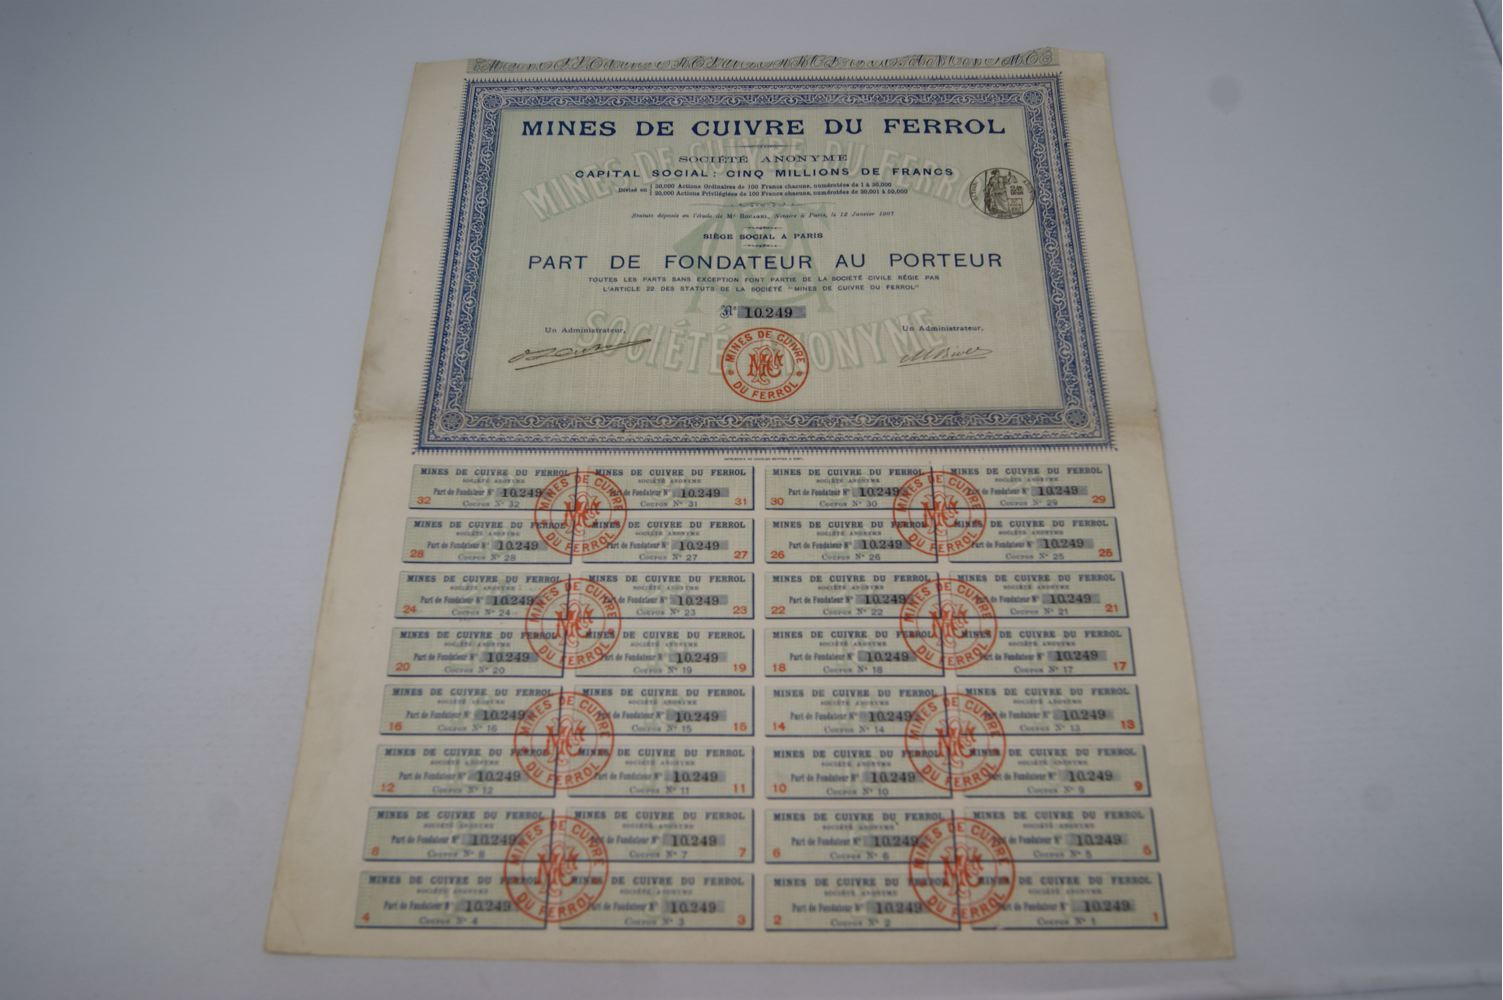 MINES DE CUIVRE DU FERROL
SOCIÉTÉ ANONYME
CAPITAL SOCIAL: CINQ MILLIONS DE FRANCS
Divisé en 30,000 Actions Ordinaires de 100 Francs chacune, numérotées de 1 à 30,000
20,000 Actions Privilégiées de 100 Francs chacune, numérotées de 30,001 à 50,000
Statuts déposés en l'étude de Me Notaire à Paris, le 12 Janvier 1907
SIÈGE SOCIAL A PARIS
PART DE FONDATEUR AU PORTEUR
TOUTES LES PARTS SANS EXCEPTION FONT PARTIE DE LA SOCIÉTÉ CIVILE RÉGIE PAR
L'ARTICLE 22 DES STATUTS DE LA SOCIÉTÉ "MINES DE CUIVRE DU FERROL"
No 10.249
Un Administrateur, Un Administrateur,
MINES DE CUIVRE DU FERROL
MINES DE CUIVRE DU FERROL MINES DE CUIVRE DU FERROL MINES DE CUIVRE DU FERROL MINES DE CUIVRE DU FERROL
SOCIÉTÉ ANONYME SOCIÉTÉ ANONYME SOCIÉTÉ ANONYME SOCIÉTÉ ANONYME
Part de Fondateur No 10.249 Part de Fondateur No 10.249 Part de Fondateur No 10.249 Part de Fondateur No 10.249
32 Coupon No 32 Coupon No 31 31 30 Coupon No 30 Coupon No 29 29
MINES DE CUIVRE DU FERROL MINES DE CUIVRE DU FERROL MINES DE CUIVRE DU FERROL MINES DE CUIVRE DU FERROL
SOCIÉTÉ ANONYME SOCIÉTÉ ANONYME SOCIÉTÉ ANONYME SOCIÉTÉ ANONYME
Part de Fondateur No 10.249 Part de Fondateur No 10.249 Part de Fondateur No 10.249 Part de Fondateur No 10.249
28 Coupon No 28 Coupon No 27 27 26 Coupon No 26 Coupon No 25 25
MINES DE CUIVRE DU FERROL MINES DE CUIVRE DU FERROL MINES DE CUIVRE DU FERROL MINES DE CUIVRE DU FERROL
SOCIÉTÉ ANONYME SOCIÉTÉ ANONYME SOCIÉTÉ ANONYME SOCIÉTÉ ANONYME
Part de Fondateur No 10.249 Part de Fondateur No 10.249 Part de Fondateur No 10.249 Part de Fondateur No 10.249
24 Coupon No 24 Coupon No 23 23 22 Coupon No 22 Coupon No 21 21
MINES DE CUIVRE DU FERROL MINES DE CUIVRE DU FERROL MINES DE CUIVRE DU FERROL MINES DE CUIVRE DU FERROL
SOCIÉTÉ ANONYME SOCIÉTÉ ANONYME SOCIÉTÉ ANONYME SOCIÉTÉ ANONYME
Part de Fondateur No 10.249 Part de Fondateur No 10.249 Part de Fondateur No 10.249 Part de Fondateur No 10.249
20 Coupon No 20 Coupon No 19 19 18 Coupon No 18 Coupon No 17 17
MINES DE CUIVRE DU FERROL MINES DE CUIVRE DU FERROL MINES DE CUIVRE DU FERROL MINES DE CUIVRE DU FERROL
SOCIÉTÉ ANONYME SOCIÉTÉ ANONYME SOCIÉTÉ ANONYME SOCIÉTÉ ANONYME
Part de Fondateur No 10.249 Part de Fondateur No 10.249 Part de Fondateur No 10.249 Part de Fondateur No 10.249
16 Coupon No 16 Coupon No 15 15 14 Coupon No 14 Coupon No 13 13
MINES DE CUIVRE DU FERROL MINES DE CUIVRE DU FERROL MINES DE CUIVRE DU FERROL MINES DE CUIVRE DU FERROL
SOCIÉTÉ ANONYME SOCIÉTÉ ANONYME SOCIÉTÉ ANONYME SOCIÉTÉ ANONYME
Part de Fondateur No 10.249 Part de Fondateur No 10.249 Part de Fondateur No 10.249 Part de Fondateur No 10.249
12 Coupon No 12 Coupon No 11 11 10 Coupon No 10 Coupon No 9 9
MINES DE CUIVRE DU FERROL MINES DE CUIVRE DU FERROL MINES DE CUIVRE DU FERROL MINES DE CUIVRE DU FERROL
SOCIÉTÉ ANONYME SOCIÉTÉ ANONYME SOCIÉTÉ ANONYME SOCIÉTÉ ANONYME
Part de Fondateur No 10.249 Part de Fondateur No 10.249 Part de Fondateur No 10.249 Part de Fondateur No 10.249
8 Coupon No 8 Coupon No 7 7 6 Coupon No 6 Coupon No 5 5
MINES DE CUIVRE DU FERROL MINES DE CUIVRE DU FERROL MINES DE CUIVRE DU FERROL MINES DE CUIVRE DU FERROL
SOCIÉTÉ ANONYME SOCIÉTÉ ANONYME SOCIÉTÉ ANONYME SOCIÉTÉ ANONYME
Part de Fondateur No 10.249 Part de Fondateur No 10.249 Part de Fondateur No 10.249 Part de Fondateur No 10.249
4 Coupon No 4 Coupon No 3 3 2 Coupon No 2 Coupon No 1 1